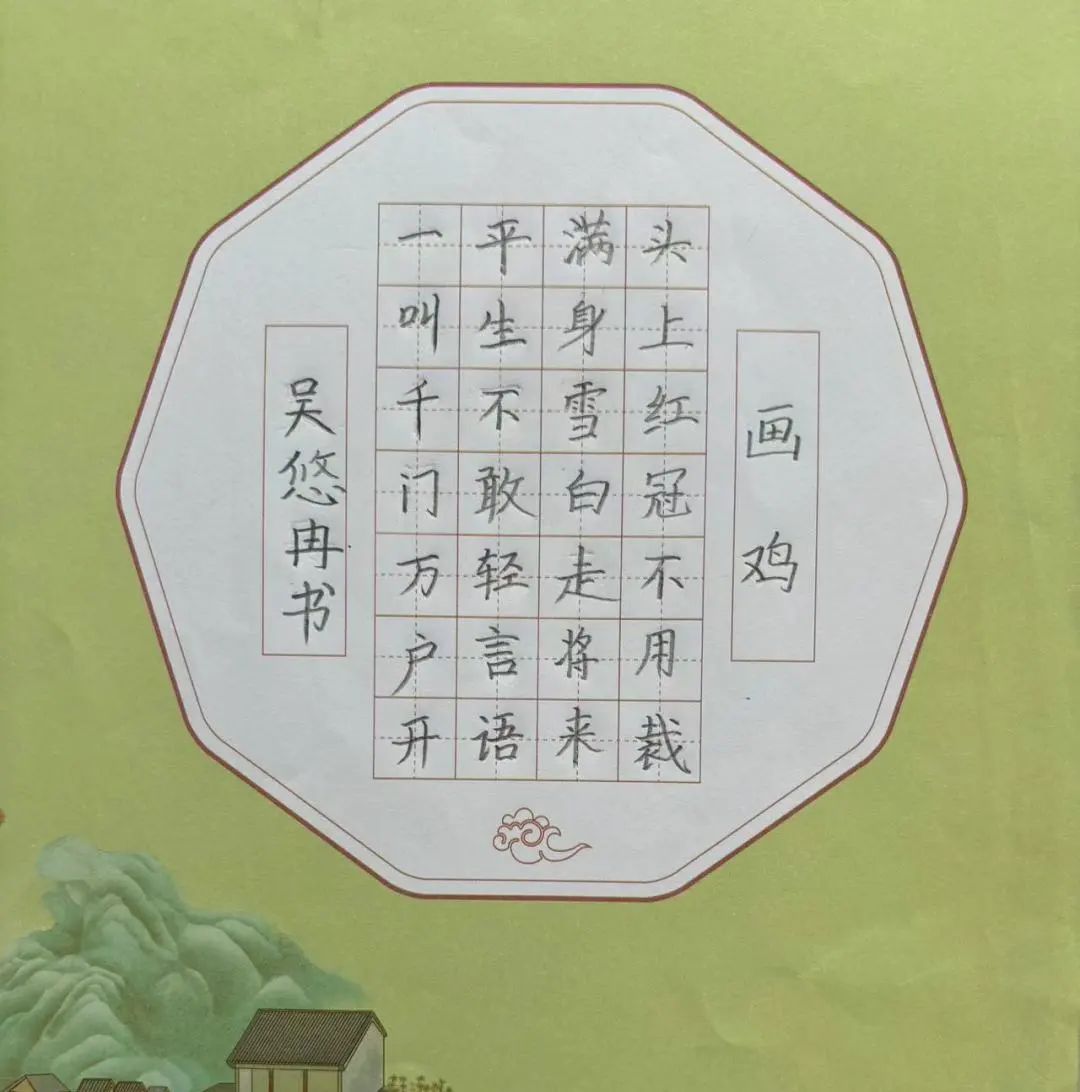 画鸡
头上红冠不用裁
满身雪白走将来
平生不敢轻言语
一叫千门万户开
吴悠冉书